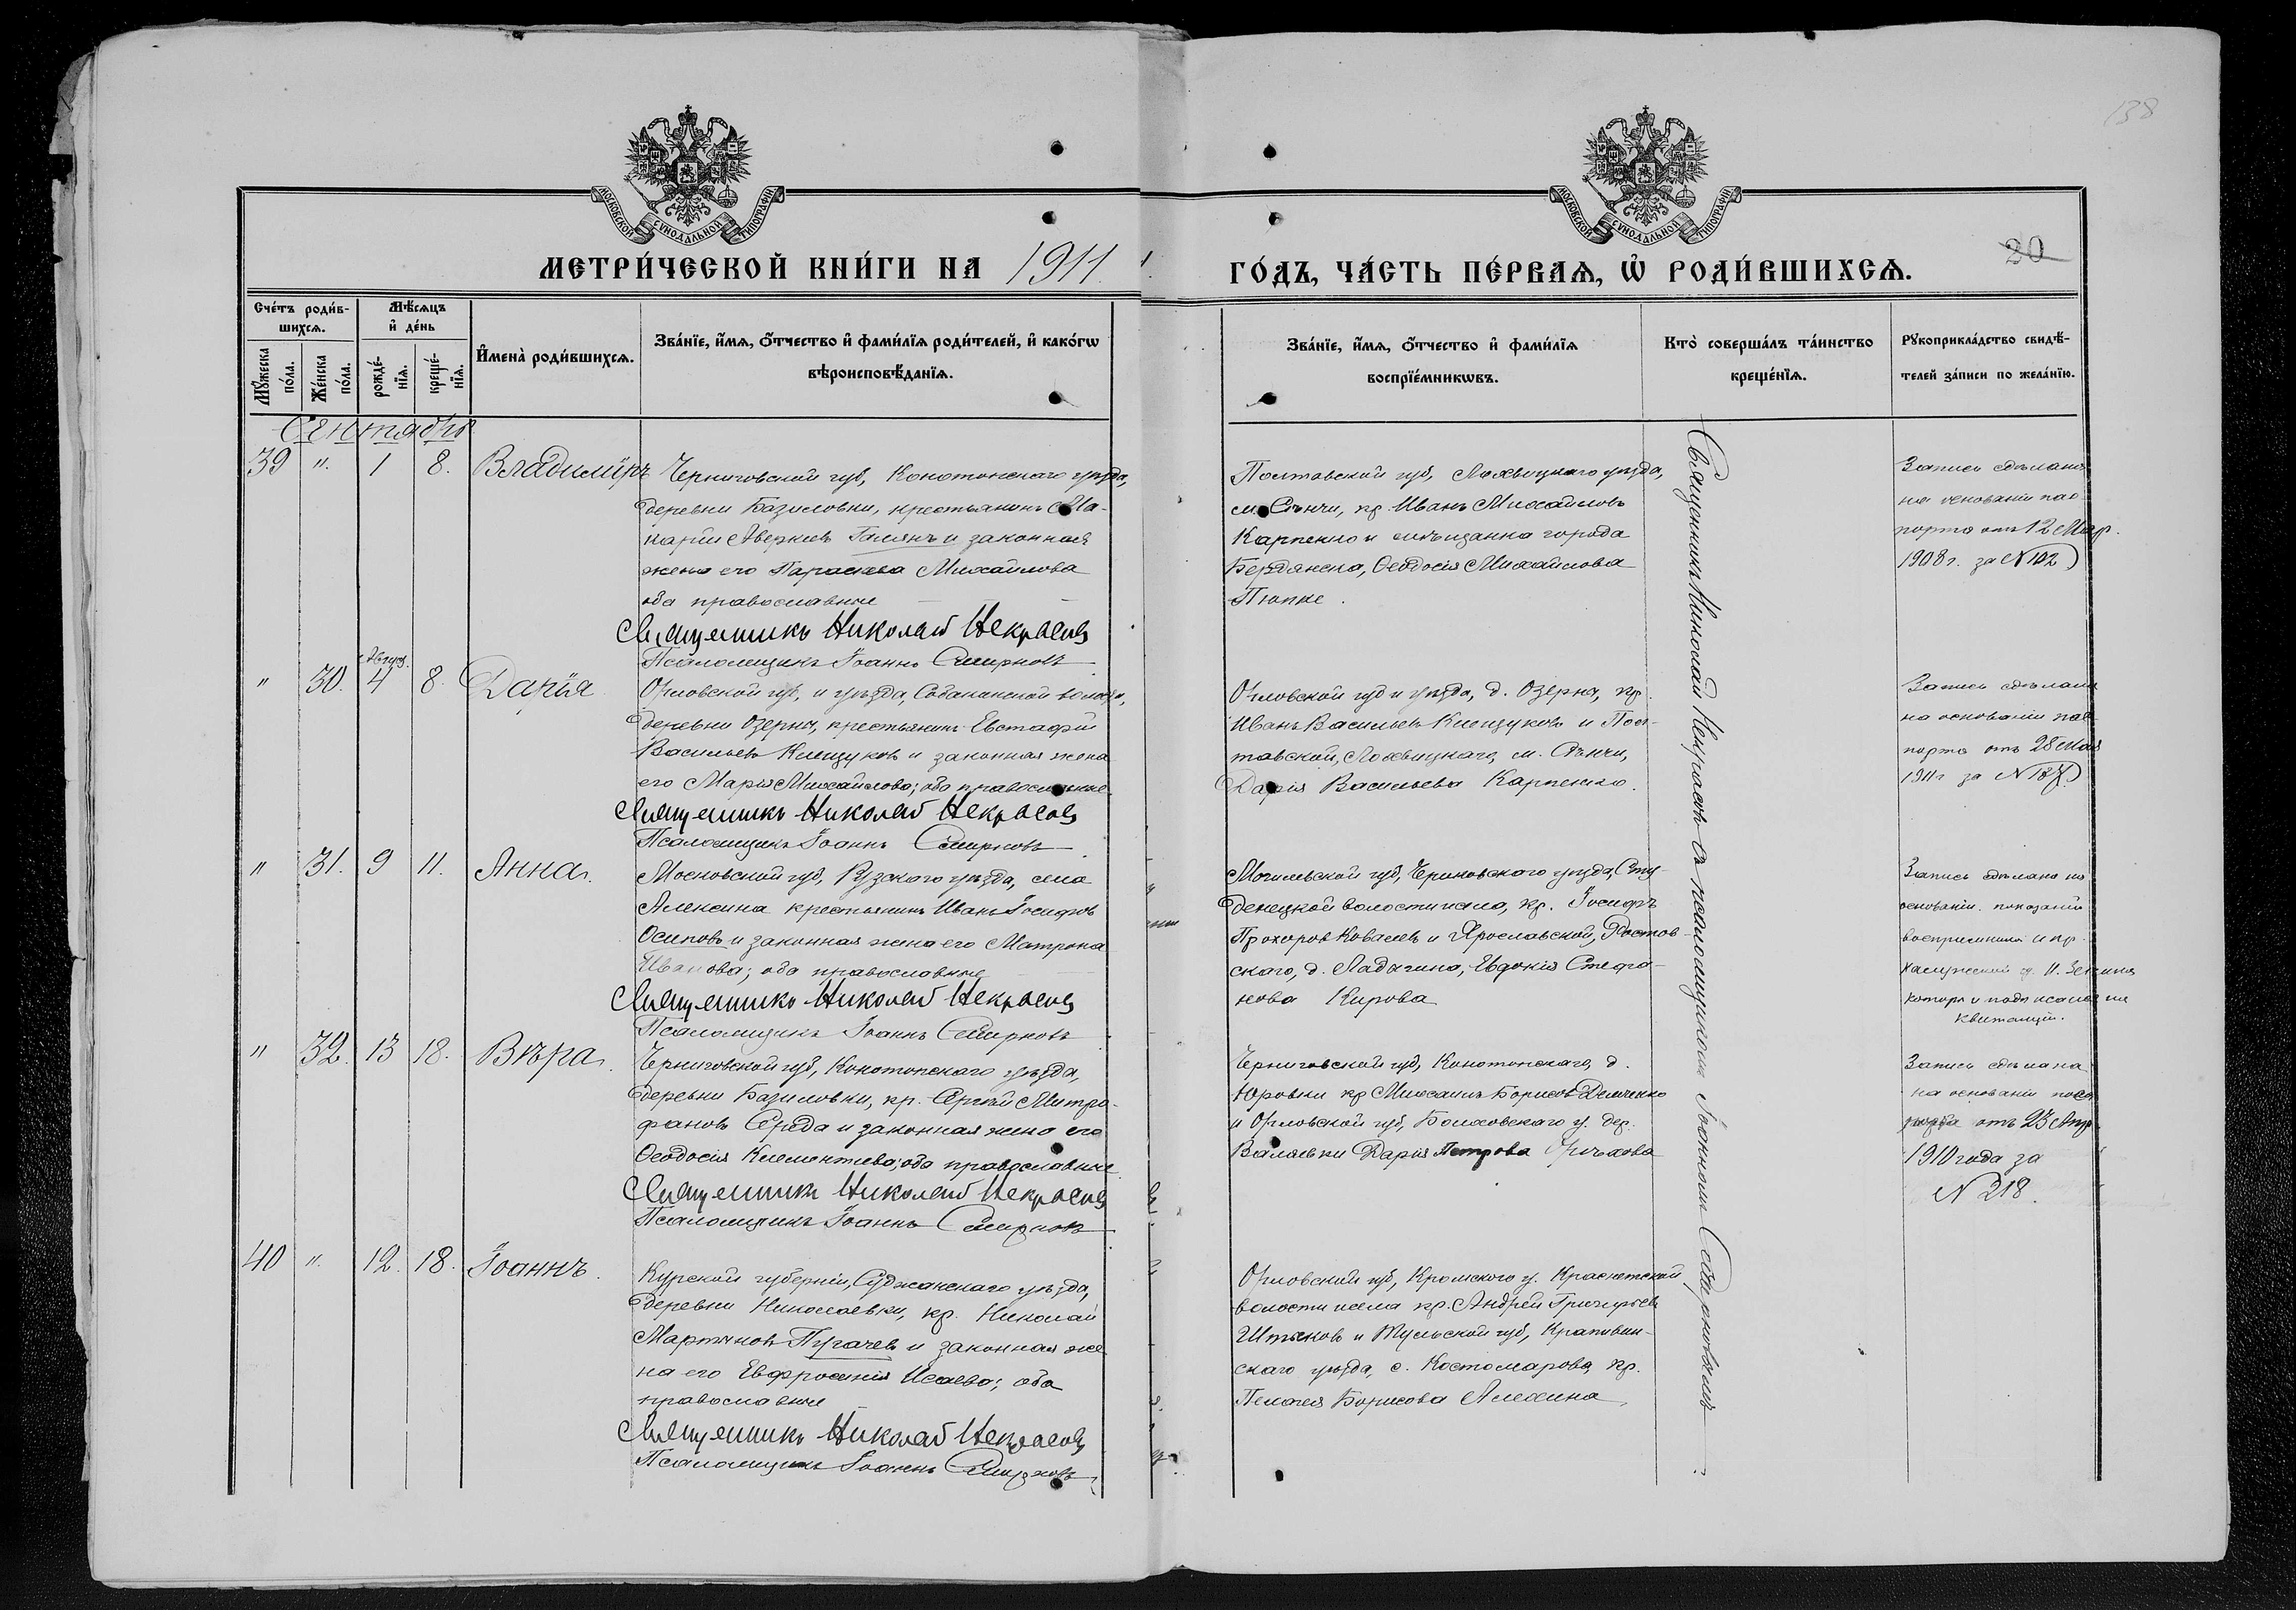 138
МОСКОВСКОЙ СѴНОДАЛЬНОЙ ТИПОГРАФІИ
МОСКОВСКОЙ СѴНОДАЛЬНОЙ ТИПОГРАФІИ
МЕТРИ́ЧЕСКОЙ КНИ́ГИ НА 1911
ГО́ДЪ, ЧА́СТЬ ПЕ́РВАѦ, Ѡ҆ РОДИ́ВШИХСѦ.
20
Сче́тъ роди́в-
шихсѧ.
Мѣ́сѧцъ
и҆ де́нь
Мꙋ́жеска
по́ла.
Же́нска
по́ла.
рожде́-
нїѧ.
креще́-
нїѧ.
И҆мена̀ роди́вшихсѧ.
Зва́нїе, и҆́мѧ, ѻ҆́тчество и҆ фами́лїѧ роди́телей, и҆ како́гѡ
вѣроисповѣ́данїѧ.
Зва́нїе, и҆́мѧ, ѻ҆́тчество и҆ фами́лїѧ
воспрїе́мникѡвъ.
Кто̀ соверша́лъ та́инство
креще́нїѧ.
Рꙋкоприкла́дство свидѣ́-
телей за́писи по жела́нїю.
Сентябрь
39 " 1 8. Владиміръ
Черниговской губ, Конотопскаго уѣзда,
деревни Базиловки, крестьянинъ Ма-
карій Аверкіевъ Галянъ и законная
жена его Параскева Михайлова
оба православные
Священникъ Николай Некрасовъ
Псаломщикъ Іоаннъ Смирновъ
Полтавской губ, Лохвицкаго уѣзда,
м. Сѣнчи, кр. Иванъ Михайловъ
Карпенко и мѣщанка города
Бердянска, Ѳеодосія Михайлова
Пюпке.
Запись сдѣлана
на основаніи пас
порта отъ 12 Мар.
1908 г. за N 102
" 30. Август. 4 8. Дарія
Орловской губ, и уѣзда, волости,
деревни Озерна, крестьянинъ Евстафій
Васильевъ Клещуковъ и законная жена
его Марія Михайлова; оба православные
Священникъ Николай Некрасовъ
Псаломщикъ Іоаннъ Смирновъ
Орловской губ и уѣзда, д. Озерна, кр.
Иванъ Васильевъ Клещуковъ и Пол-
тавской, Лохвицкаго, м. Сѣнчи,
Дарія Васильева Карпенко.
Запись сдѣлана
на основаніи пас-
порта отъ 28 Мая
1911 г за N 187
" 31. 9 11. Анна.
Московской губ, Рузскаго уѣзда, села
Алексина крестьянинъ Иванъ Іосифовъ
Осиповъ и законная жена его Матрона
Иванова; оба православные
Священникъ Николай Некрасовъ
Псаломщикъ Іоаннъ Смирновъ
Могилевской губ, Чериковскаго уѣзда, Сту-
денецкой волости и села, кр. Іосифъ
Прохоровъ Ковалевъ и Ярославской, Ростов-
скаго, д. Ладыгина, Евдокія Стефа-
нова Кирова
Запись сдѣлана на
основаніи показаній
воспріемника и кр.
Калужской г. И.
квитанціи.
" 32. 13 18. Вѣра.
Черниговской губ, Конотопскаго уѣзда,
деревни Базиловки, кр. Сергій Митро-
фановъ Середа и законная жена его
Ѳеодосія Климентіева; оба православные
Священникъ Николай Некрасовъ
Псаломщикъ Іоаннъ Смирновъ
Черниговской губ, Конотопскаго, д.
Юровки кр Михаилъ Борисовъ Демченко
и Орловской губ, Болховскаго у. дер.
Дарія Петрова
Запись сдѣлана
на основаніи пасп
порта отъ 23 Апр.
1910 года за
N 218.
40 " 12. 18. Іоаннъ.
Курской губерніи, Суджанскаго уѣзда,
деревни Николаевки, кр. Николай
Мартиновъ Пугачевъ и законная же
на его Евфросинія Исаева; оба
православные
Священникъ Николай Некрасовъ
Псаломщикъ Іоаннъ Смирновъ
Орловской губ, Кромскаго у.
волости и села кр. Андрей Григорьевъ
Штыковъ и Тульской губ, Крапивен-
скаго уѣзда, с. Костомарова, кр.
Пелагея Борисова Алехина
Священникъ Николай Некрасовъ съ псаломщикомъ Іоанномъ Смирновымъ